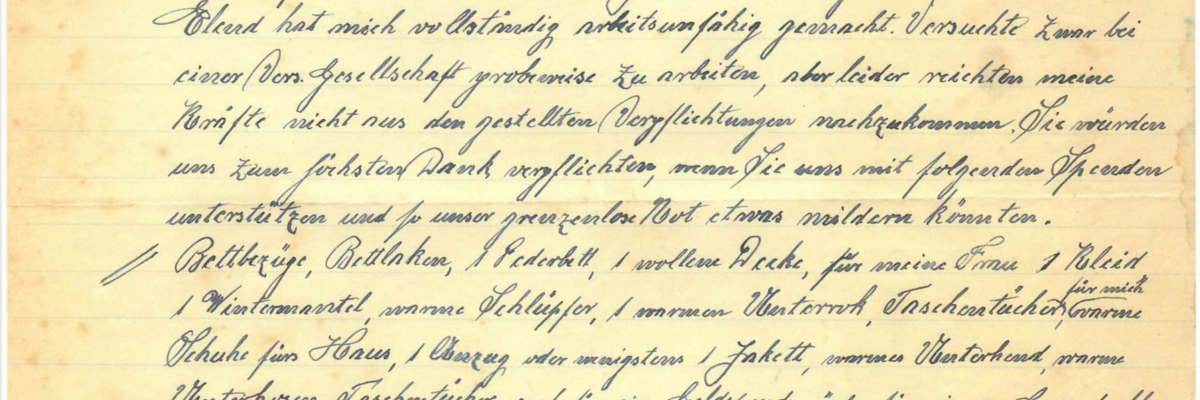 Elend hat mich vollständig arbeitsunfähig gemacht. Versuchte zwar bei
einer Vers. Gesellschaft probeweise zu arbeiten, aber leider reichten meine
Kräfte nicht aus den gestellten Verpflichtungen nachzukommen. Sie würden
uns zum höchsten Dank verpflichten, wenn Sie uns mit folgenden Spenden
unterstützen und so unser grenzenlose Not etwas mildern könnten.
// Bettbezüge, Bettlaken, 1 Federbett, 1 wollene Decke, für meine Frau 1 Kleid
für mich
1 Wintermantel, warme Schlüpfer, 1 warmen Unterrock, Taschentücher, warme
Schuhe fürs Haus, 1 Anzug oder wenigstens 1 Jakett, warmes Unterhemd, warme
Unterhosen, Taschentücher